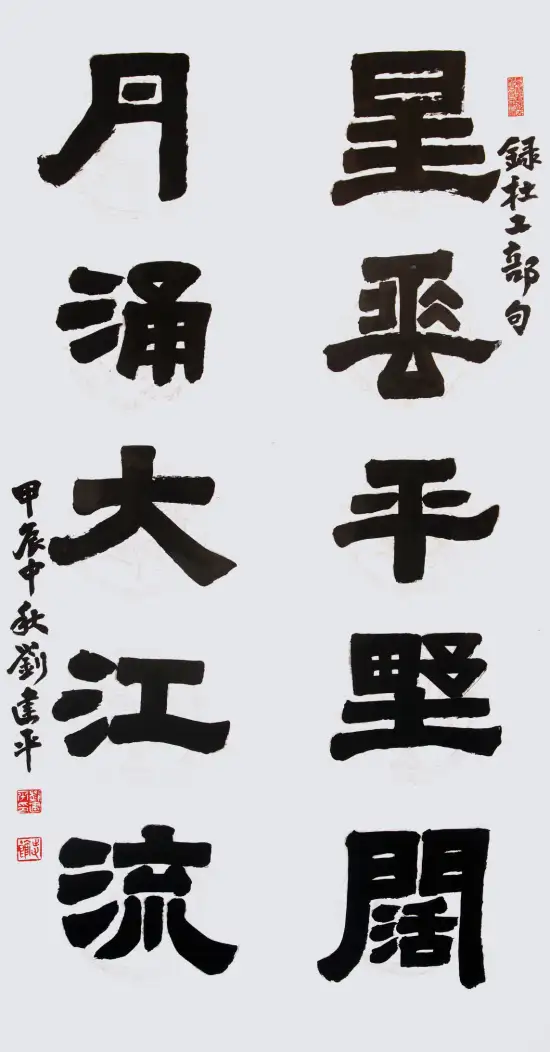 録杜工部句
星垂平野闊
月涌大江流
甲辰中秋劉建平